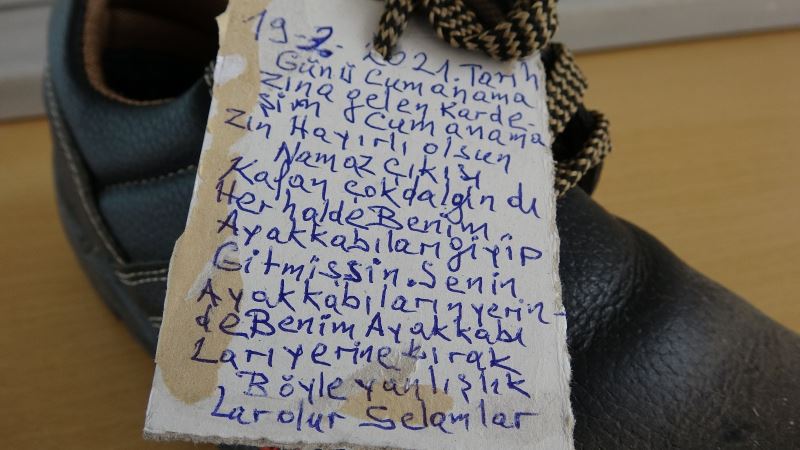 19-2-2021.Tarih
Günü Cumanama
Zına gelen Karde-
Şim Cumanama
Zın Hayırlı olsun
Namaz Çıkışı
Kafan çokdalgın dı
Her haldeBenim
Ayakkabılarıgiyip
Gitmişsin.Senin
Ayakkabılarınyerin-
deBenim Ayakkabı
Ları yerine bırak
Böyle yanlışlık
Lar olur Selamlar